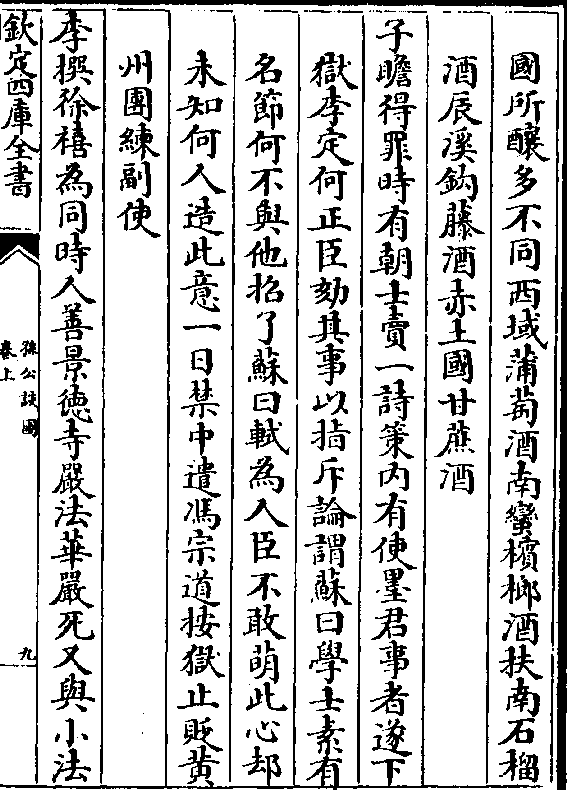 國所釀多不同西域蒲萄酒南蠻檳榔酒扶南石榴
酒辰溪鈎藤酒赤土國甘蔗酒
子瞻得罪時有朝士賣一詩策内有使墨君事者遂下
獄李定何正臣劾其事以指斥論謂蘇曰學士素有
名節何不與他招了蘇曰軾為人臣不敢萌此心却
未知何人造此意一日禁中遣馮宗道按獄止貶黄
州團練副使
李撰徐禧為同時人善景徳寺嚴法華嚴死又與小法
欽定四庫全書
孫公談圃
卷上
九